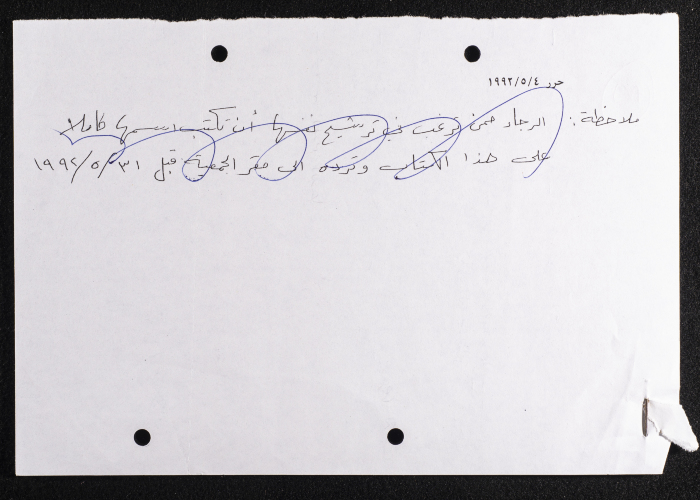 حرر ١٩٩٢/٥/٤
ملاحظة: الرجاء ممن ترغب في ترشيح نفسها أن تكتب اسمها كاملا
على هذا الكتاب وترده الى مقر الجمعية قبل ١٩٩٢/٥/٣١